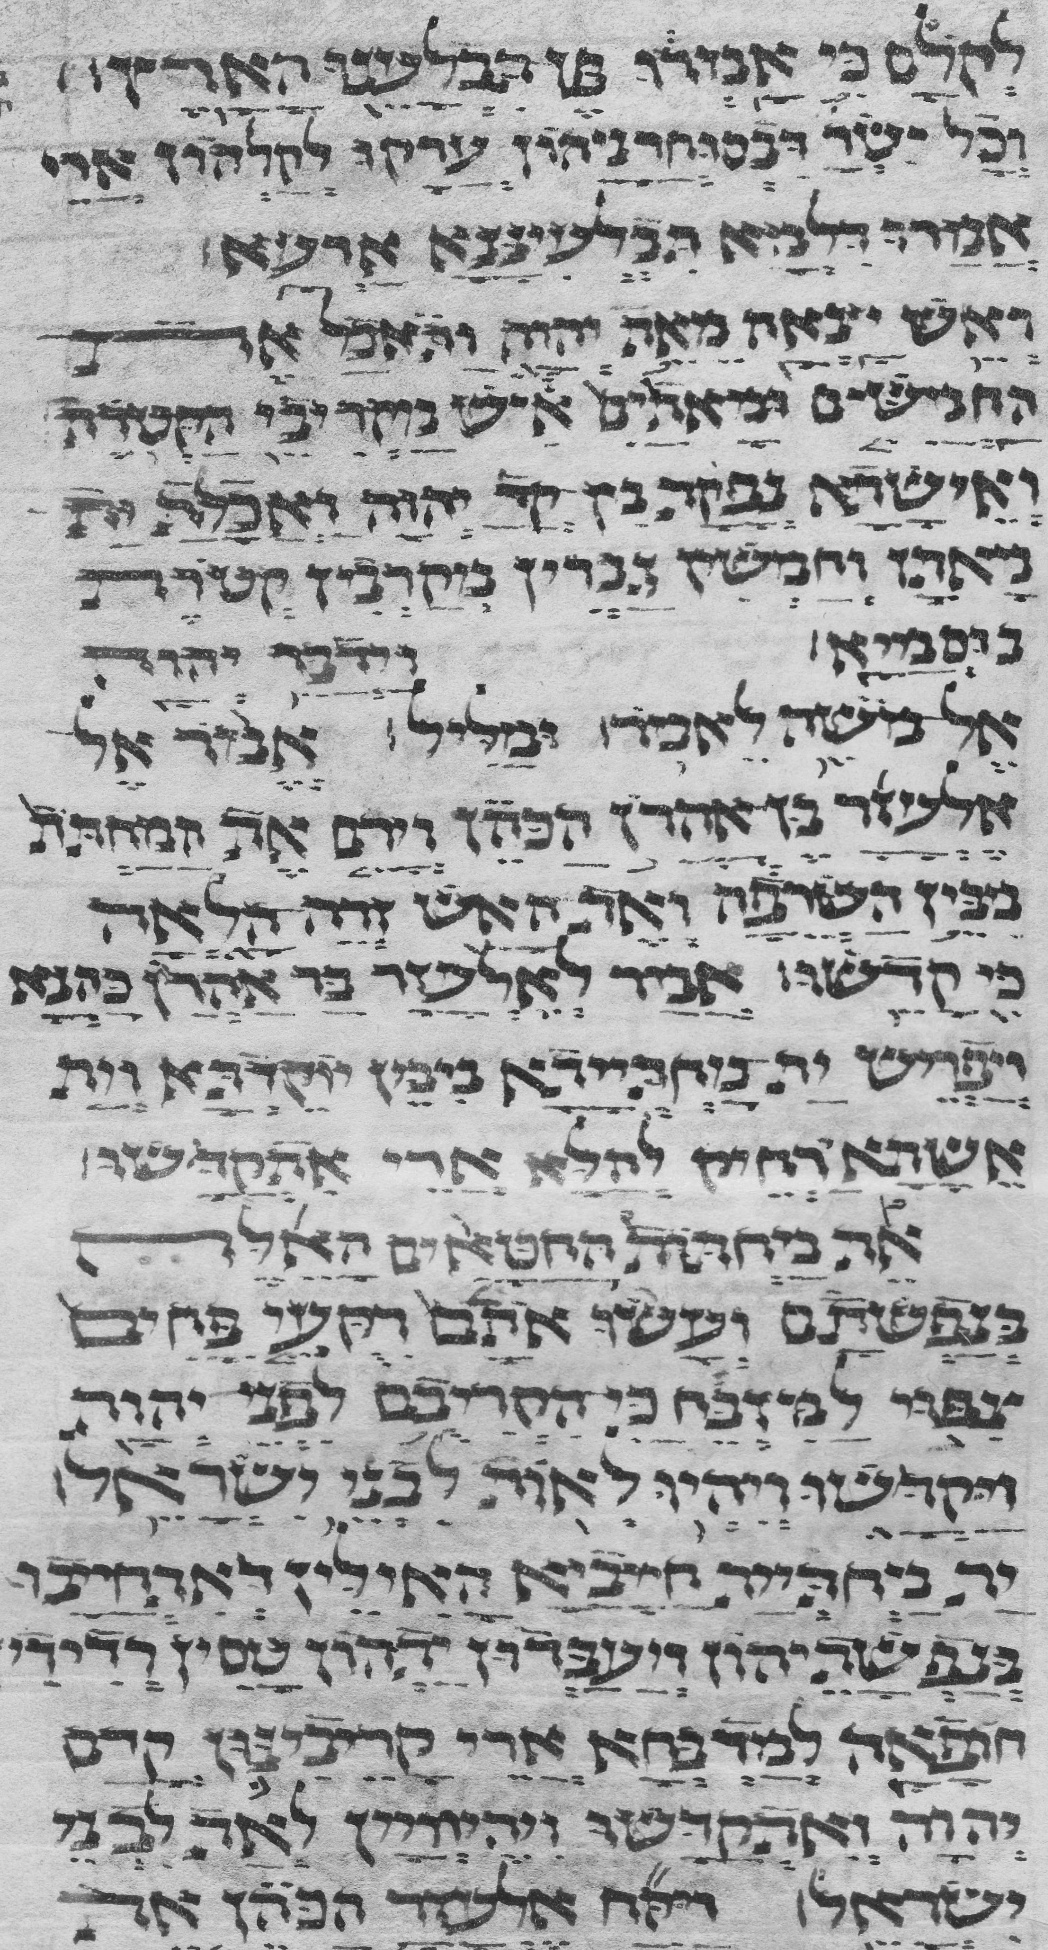 לקלם כי אמרו פן תבלענו הארץ
וכל ישר דבסוחרניהון ערקו לקלהון ארי
אמרו דלמא תבלעיננא ארעא
ואש יצאה מאת יהוה ותאכל את
החמשים ומאתים איש מקריבי הקטרת
ואישתא נפקת מן קד יהוה ואכלת ית
מאתן וחמשין גברין מקרבין קטרת
בוסמיא וידבר יהוה
אל משה לאמר ומליל אמר אל
אלעזר בן אהרן הכהן וירם את המחתת
מבין השרפה ואת האש זרה הלאה
כי קדשו אמר לאלעזר בר אהרן כהנא
ויפריש ית מחתייתא מיבין יוקדתא וית
אשתא רחיק להלא ארי אתקדשו
את מחתות החטאים האלה
בנפשתם ועשו אתם רקעי פחים
צפוי למזבח כי הקריבם לפני יהוה
ויקדשו ויהיו לאות לבני ישראל
ית מחתיית חייביא האילין דאתחייבו
בנפשתיהון ויעבדון יתהון טסין רדידין
חופאה למדבחא ארי קריבינון קדם
יהוה ואתקדשו ויהויין לאת לבני
ישראל ויקח אלעזר הכהן את